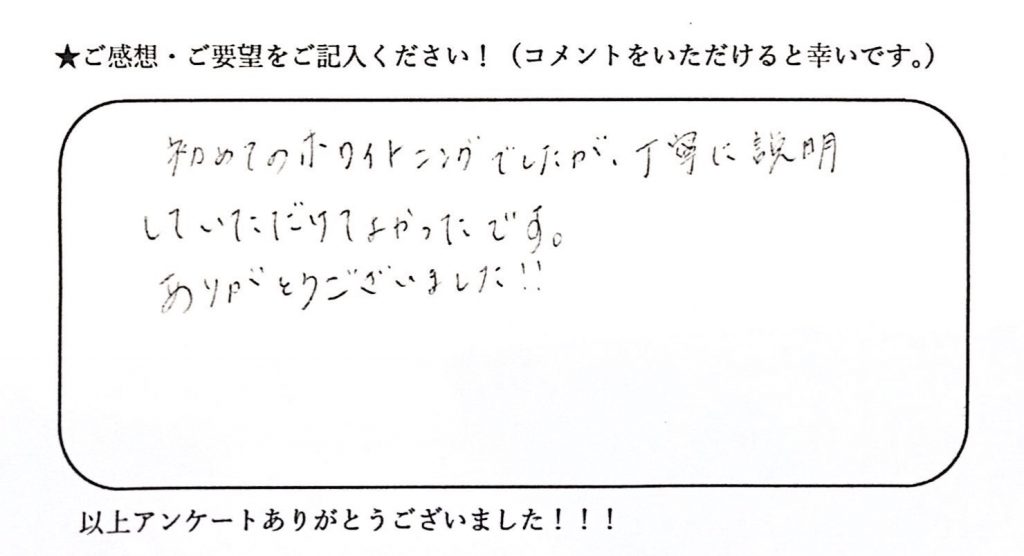 ★ご感想・ご要望をご記入ください！（コメントをいただけると幸いです。）
初めてのホワイトニングでしたが、丁寧に説明
していただけてよかったです。
ありがとうございました!!
以上アンケートありがとうございました！！！